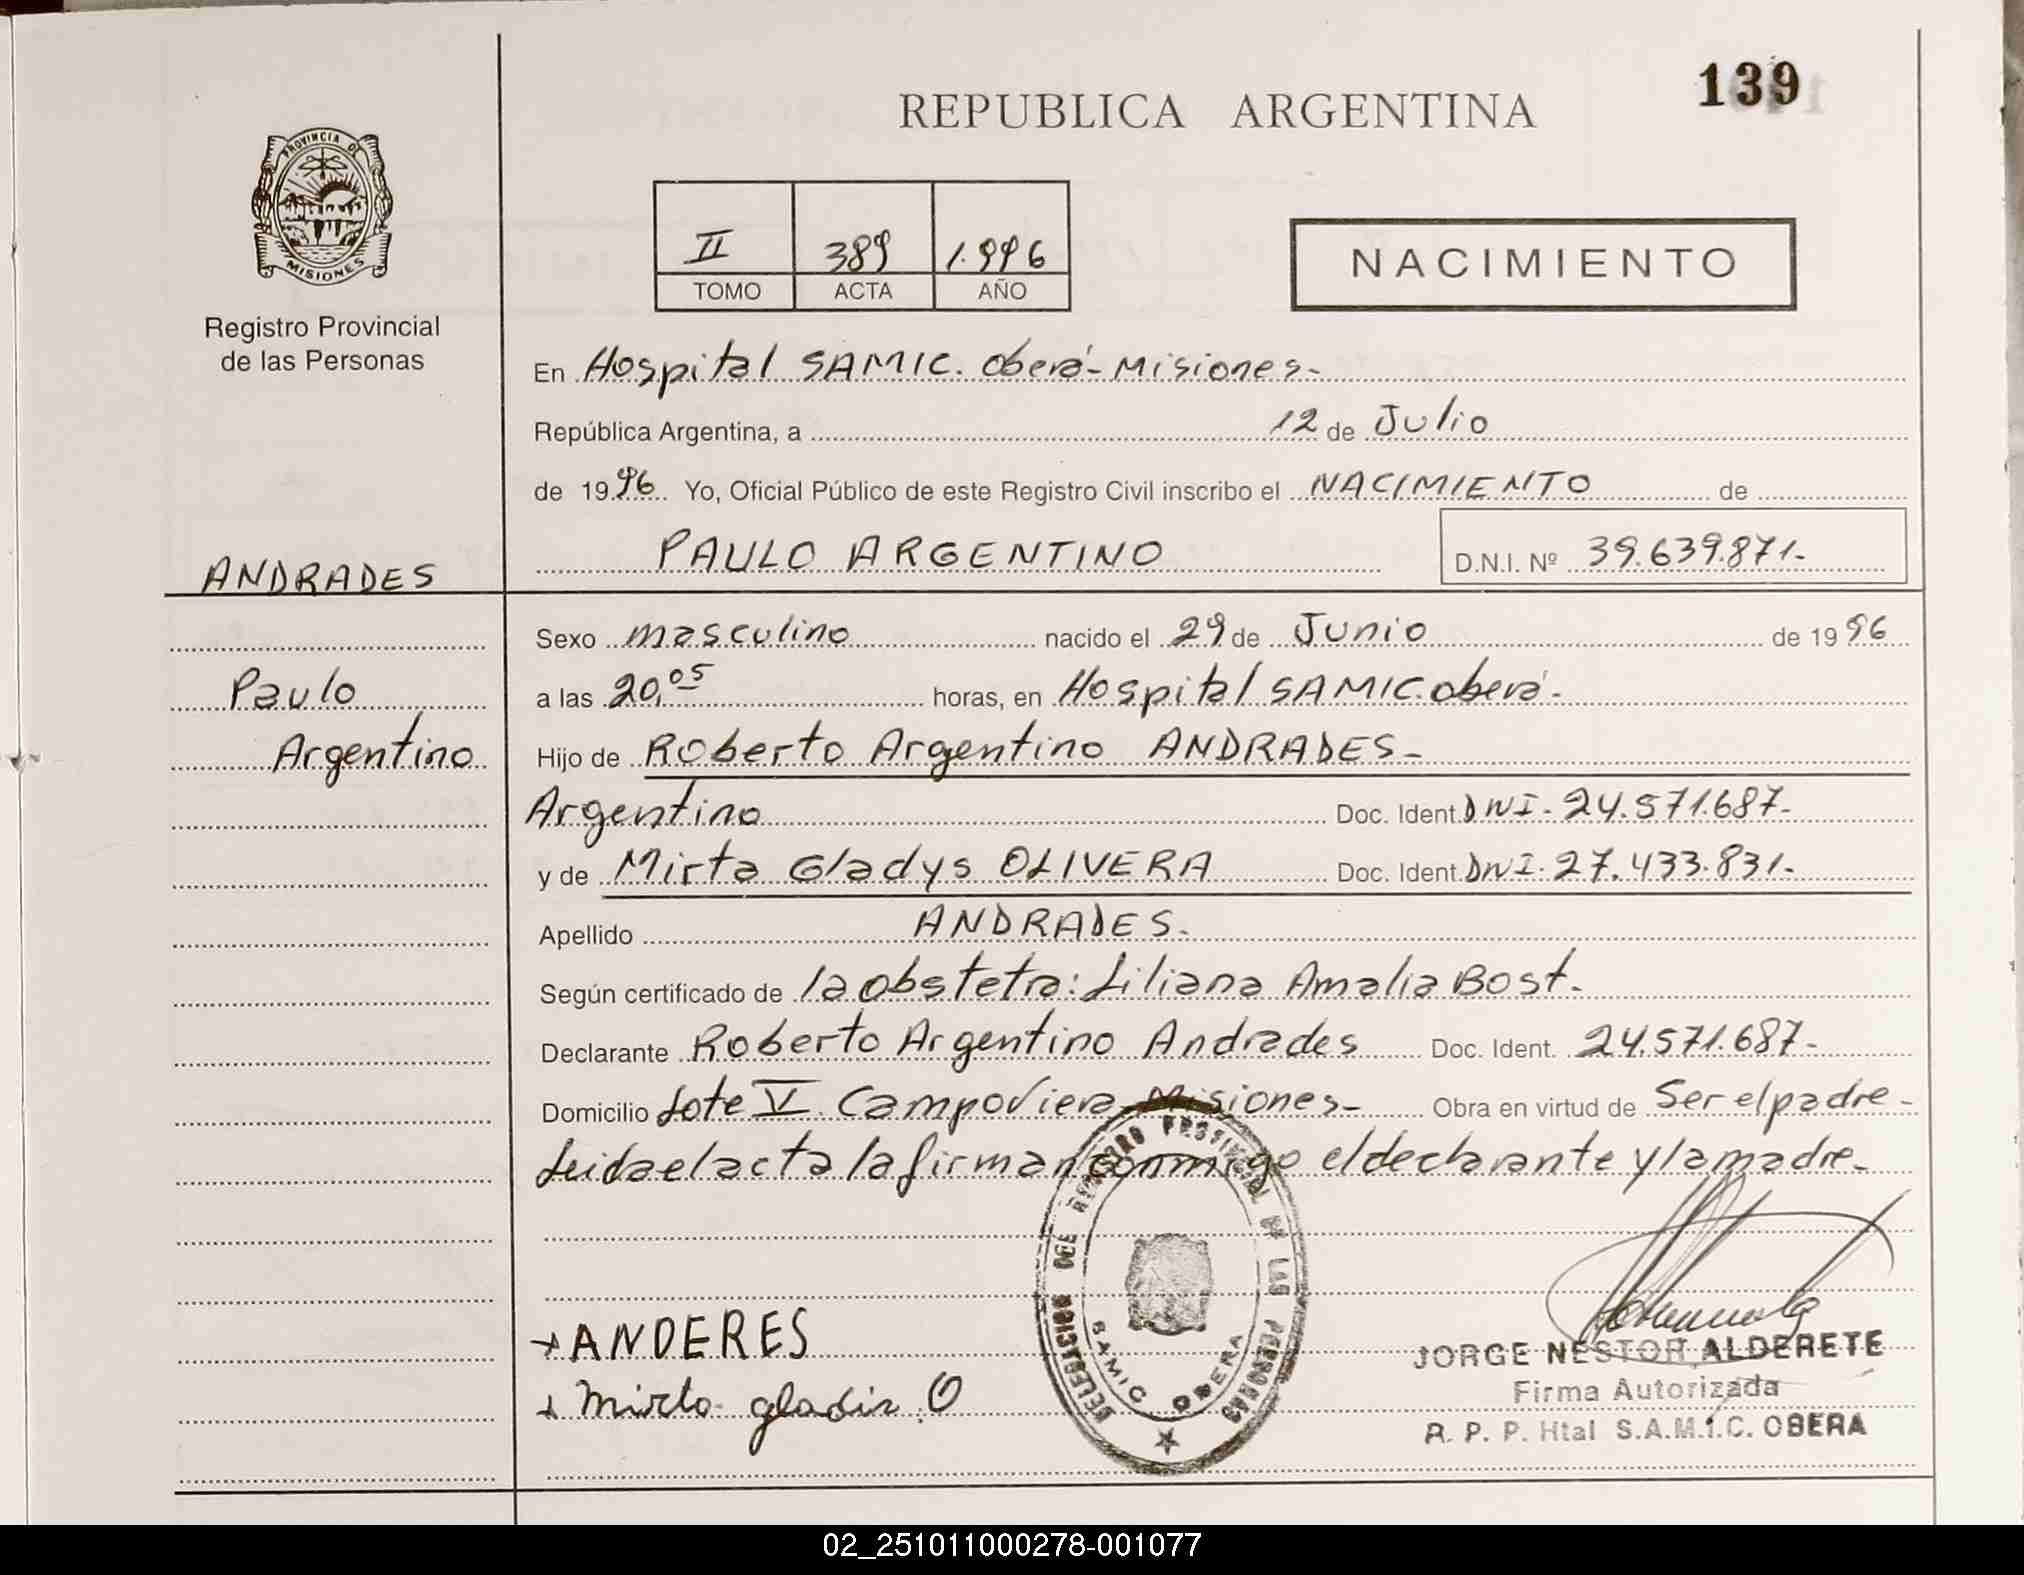 139
REPUBLICA ARGENTINA
PROVINCIA DE
MISIONES
Registro Provincial
de las Personas
II 389 1.996
TOMO ACTA AÑO
NACIMIENTO
En Hospital SAMIC. Oberá - Misiones-
República Argentina, a 12 de Julio
de 1996 Yo, Oficial Público de este Registro Civil inscribo el NACIMIENTO de
ANDRADES
PAULO ARGENTINO D.N.I. Nº 39.639.871-
Sexo masculino nacido el 29 de Junio de 1996
Paulo
a las 20,05 horas, en Hospital SAMIC. oberá-
Argentino
Hijo de Roberto Argentino ANDRADES-
Argentino Doc. Ident DNI- 24.571.687-
y de Mirta Gladys OLIVERA Doc. Ident DNI: 27.433.831-
Apellido ANDRADES-
Según certificado de la obstetra: Liliana Amalia Bost-
Declarante Roberto Argentino Andrades Doc. Ident. 24.571.687-
Domicilio Lote V. Campo Viera Misiones- Obra en virtud de Ser el padre-
Leida el acta la firman conmigo el declarante y la madre-
DELEGACION DEL REGISTRO PROVINCIAL DE LAS PERSONAS
SAMIC OBERA
ANDERES
Mirta gladis O
JORGE NESTOR ALDERETE
Firma Autorizada
R. P. P. Htal S.A.M.I.C. OBERA
02_251011000278-001077